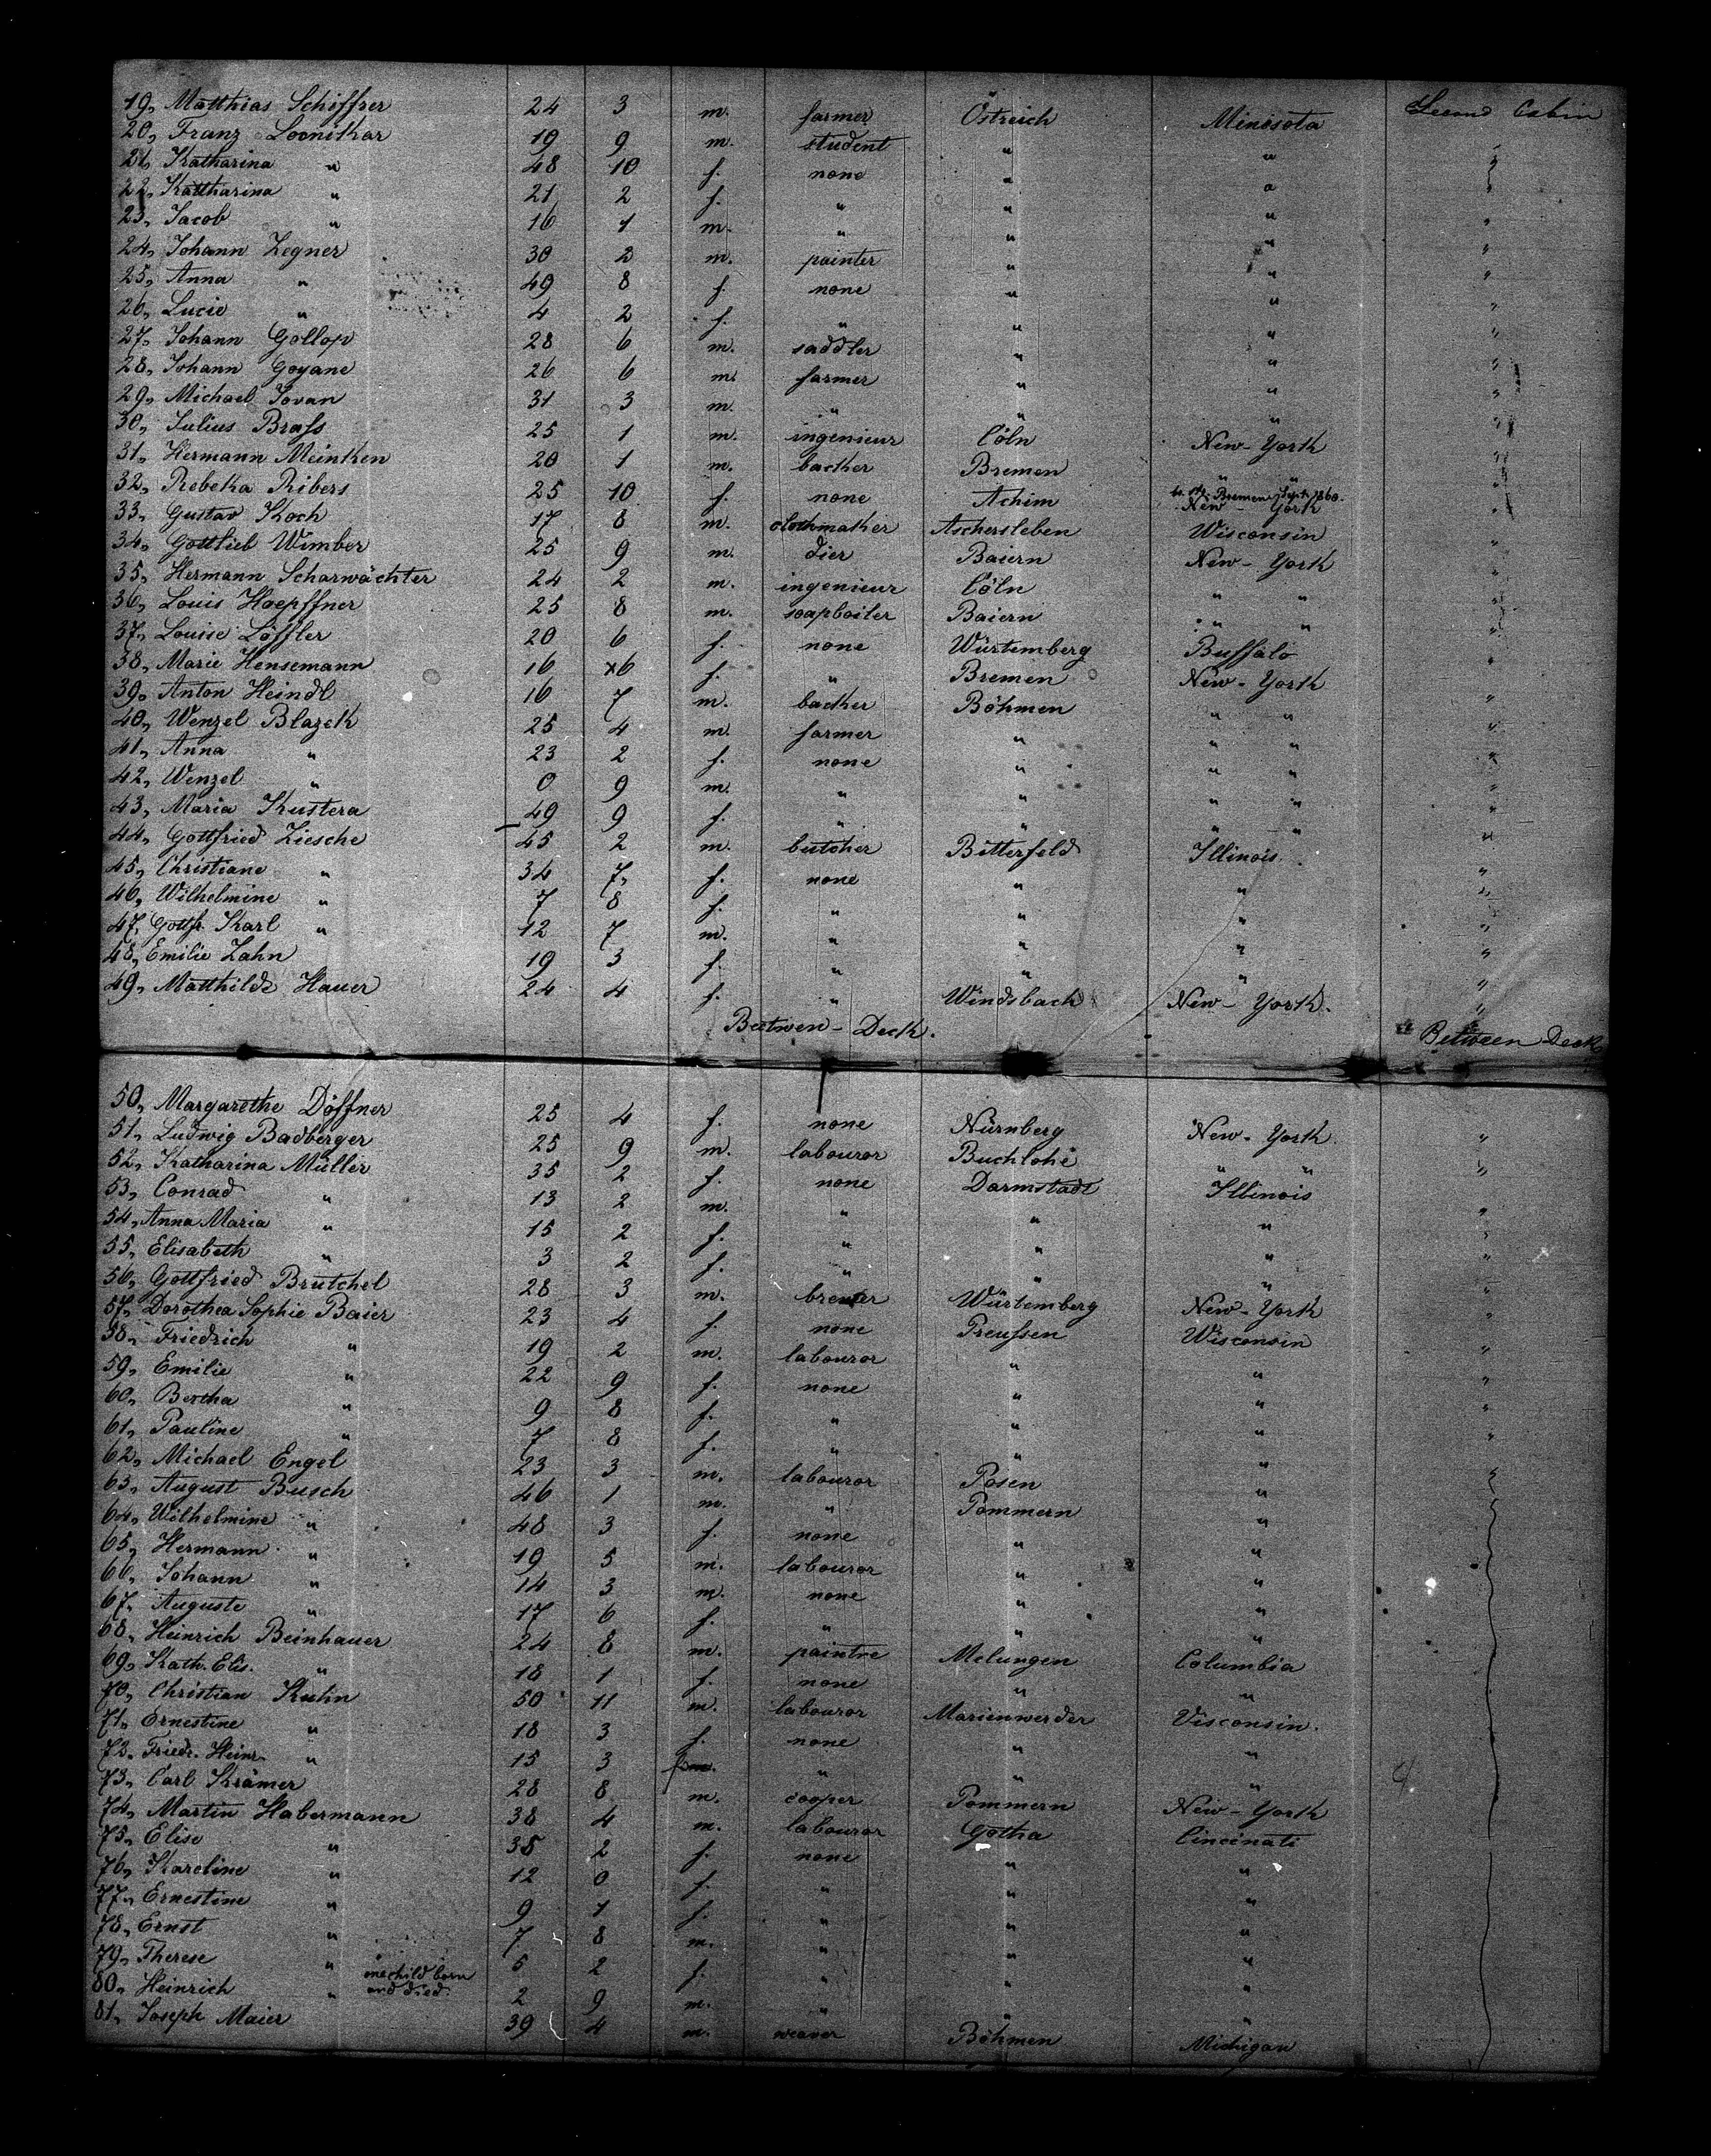 19, Matthias Schiffrer 24 3 m. farmer Östreich Minesota Second Cabin
20, Franz Loonikar 19 9 m. student " " "
21, Katharina " 48 10 f. none " " "
22, Kattharina " 21 2 f. " " " "
23, Jacob " 16 1 m. " " " "
24, Johann Zegner 30 2 m. painter " " "
25, Anna " 49 8 f. none " " "
26, Lucie " 4 2 f. " " " "
27, Johann Gollop 28 6 m. saddler " " "
28, Johann Goyane 26 6 m. farmer " " "
29, Michael Jovan 31 3 m. " " " "
30, Julius Braſs 25 1 m. ingenieur Cöln New-York "
31, Hermann Meinken 20 1 m. backer Bremen " " "
32, Rebeka Ribers 25 10 f. none Achim New-York "
Bremen Sept. 1860.
33, Gustav Koch 17 8 m. clothmaker Aschersleben Wisconsin "
34, Gottlieb Wimber 25 9 m. dier Baiern New-York "
35, Hermann Scharwächter 24 2 m. ingenieur Cöln " " "
36, Louis Hoepffner 25 8 m. soapboiler Baiern " " "
37, Louise Löffler 20 6 f. none Würtemberg Buffalo "
38, Marie Hensemann 16 x6 f. " Bremen New-York "
39, Anton Heindl 16 7 m. backer Böhmen " " "
40, Wenzel Blazek 25 4 m. farmer " " " "
41, Anna " 23 2 f. none " " " "
42, Wenzel " 0 9 m. " " " " "
43, Maria Kustera 49 9 f. " " " " "
44, Gottfried Ziesche 45 2 m. butcher Bitterfeld Illinois "
45, Christiane " 34 7, f. none " " "
46, Wilhelmine " 7 8 f. " " " "
47, Gottfr. Karl " 12 7 m. " " " "
48, Emilie Zahn 19 3 f. " " " "
49, Matthilde Hauer 24 4 f. " Windsbach New-York. "
Beetwen-Deck. Between Deck
50, Margarethe Döffner 25 4 f. none Nürnberg New-York "
51, Ludwig Badberger 25 9 m. labouror Buchlohe " " "
52, Katharina Müller 35 2 f. none Darmstadt Illinois "
53, Conrad " 13 2 m. " " " "
54, Anna Maria " 15 2 f. " " " "
55, Elisabeth " 3 2 f. " " " "
56, Gottfried Brutchel 28 3 m. brewer Würtemberg New-York "
57, Dorothea Sophie Baier 23 4 f. none Preuſsen Wisconsin "
58, Friedrich " 19 2 m. labouror " " "
59, Emilie " 22 9 f. none " " "
60, Bertha " 9 8 f. " " " "
61, Pauline " 7 8 f. " " "
62, Michael Engel 23 3 m. labouror Posen "
63, August Busch 46 1 m. " Pommern "
64, Wilhelmine " 48 3 f. none " "
65, Hermann " 19 5 m. labouror " "
66, Johann " 14 3 m. none " "
67, Auguste " 17 6 f. " " "
68, Heinrich Beinhauer 24 8 m. paintre Melungen Columbia
69, Kath. Elis. " 18 1 f. none " "
70, Christian Kuhn 50 11 m. labouror Marienwerder Visconsin.
71, Ernestine " 18 3 f. none " "
72, Friedr. Heinr. " 15 3 m. " " "
73, Carl Krämer 28 8 m. cooper Pommern New-York
74, Martin Habermann 38 4 m. labouror Gotha Cincinati
75, Elise " 38 2 f. none " "
76, Karoline " 12 0 f. " " "
77, Ernestine " 9 1 f. " " "
78, Ernst " 7 8 m. " " "
79, Therese " 5 2 f. " " "
one child born and died.
80, Heinrich " 2 9 m. " " "
81, Joseph Maier 39 4 m. weaver Böhmen Michigan